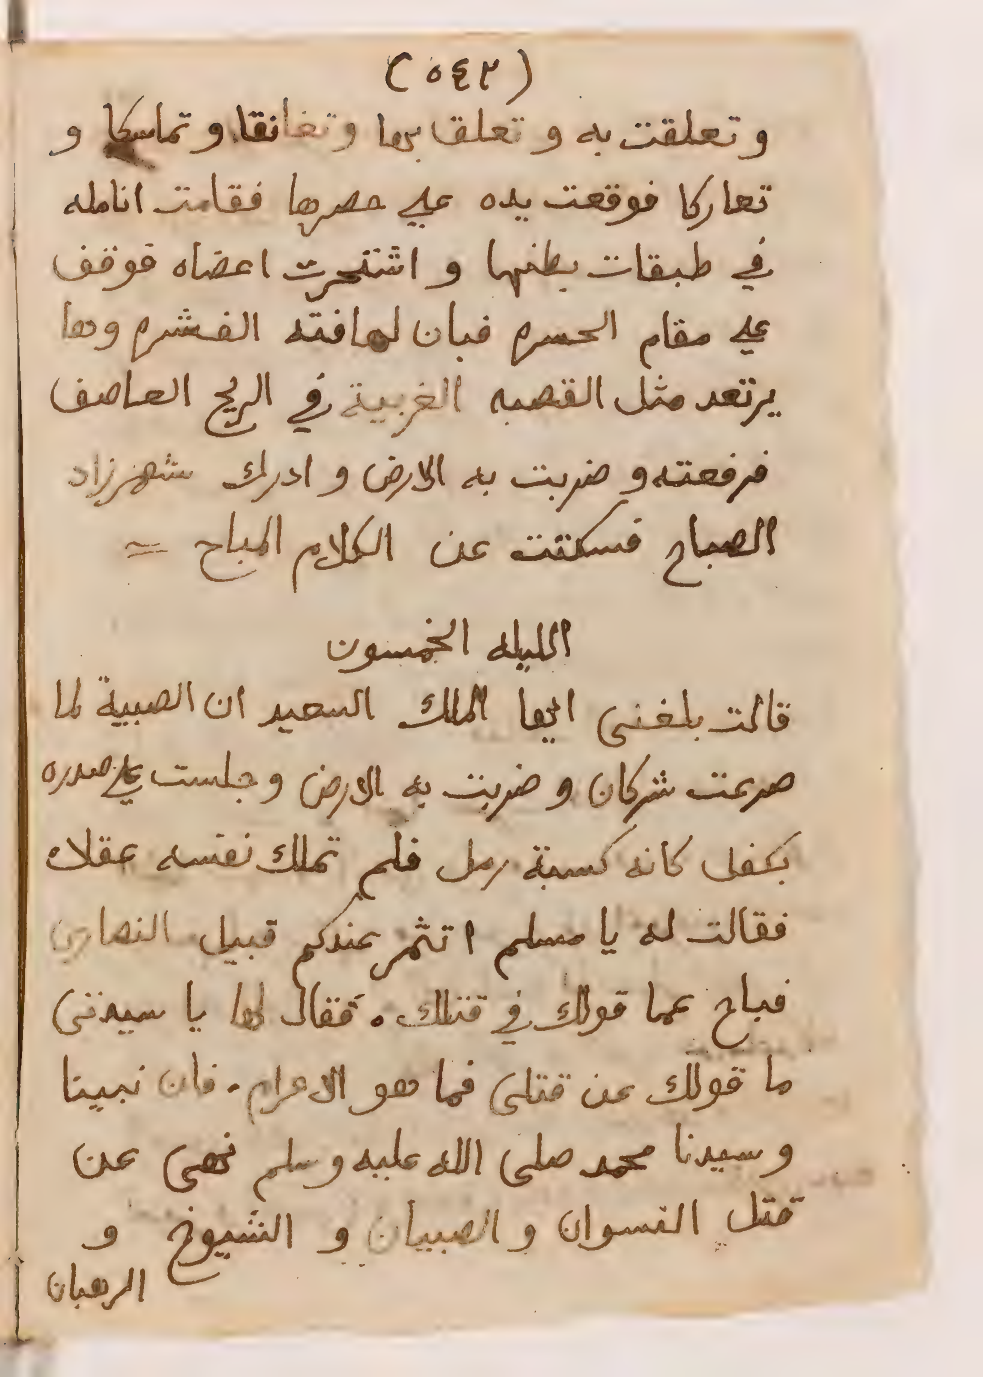 (٥٤٢)
و تعلقت به و تعلق بها و تعانقا و تماسكا و
تعاركا فوقعت يده علي خصرها فقامت انامله
في طبقات بطنها و اشتحرت اعضاه فوقف
علي مقام الحسره فبان لها فته القشره وها
يرتعد مثل القصبه الغربية في الريح العاصف
فرفعته و ضربت به الارض و ادرك شهرزاد
الصباح فسكتت عن الكلام المباح =
الليله الخمسون
قالت بلغني ايها الملك السعيد ان الصبية لما
صرعت شركان و ضربت به الارض و جلست علي صدره
بكفل كانه كسبة رمل فلم تملك نفسه عقلاه
فقالت له يا مسلم اتثمر عندكم قبيل النصاري
فباح عما قولك في قتلك . فقال لها يا سيدتي
ما قولك عن قتلي فما هو الا حرام . فان نبينا
و سيدنا محمد صلى الله عليه و سلم نهى عن
قتل النسوان و الصبيان و الشيوخ و
الرهبان